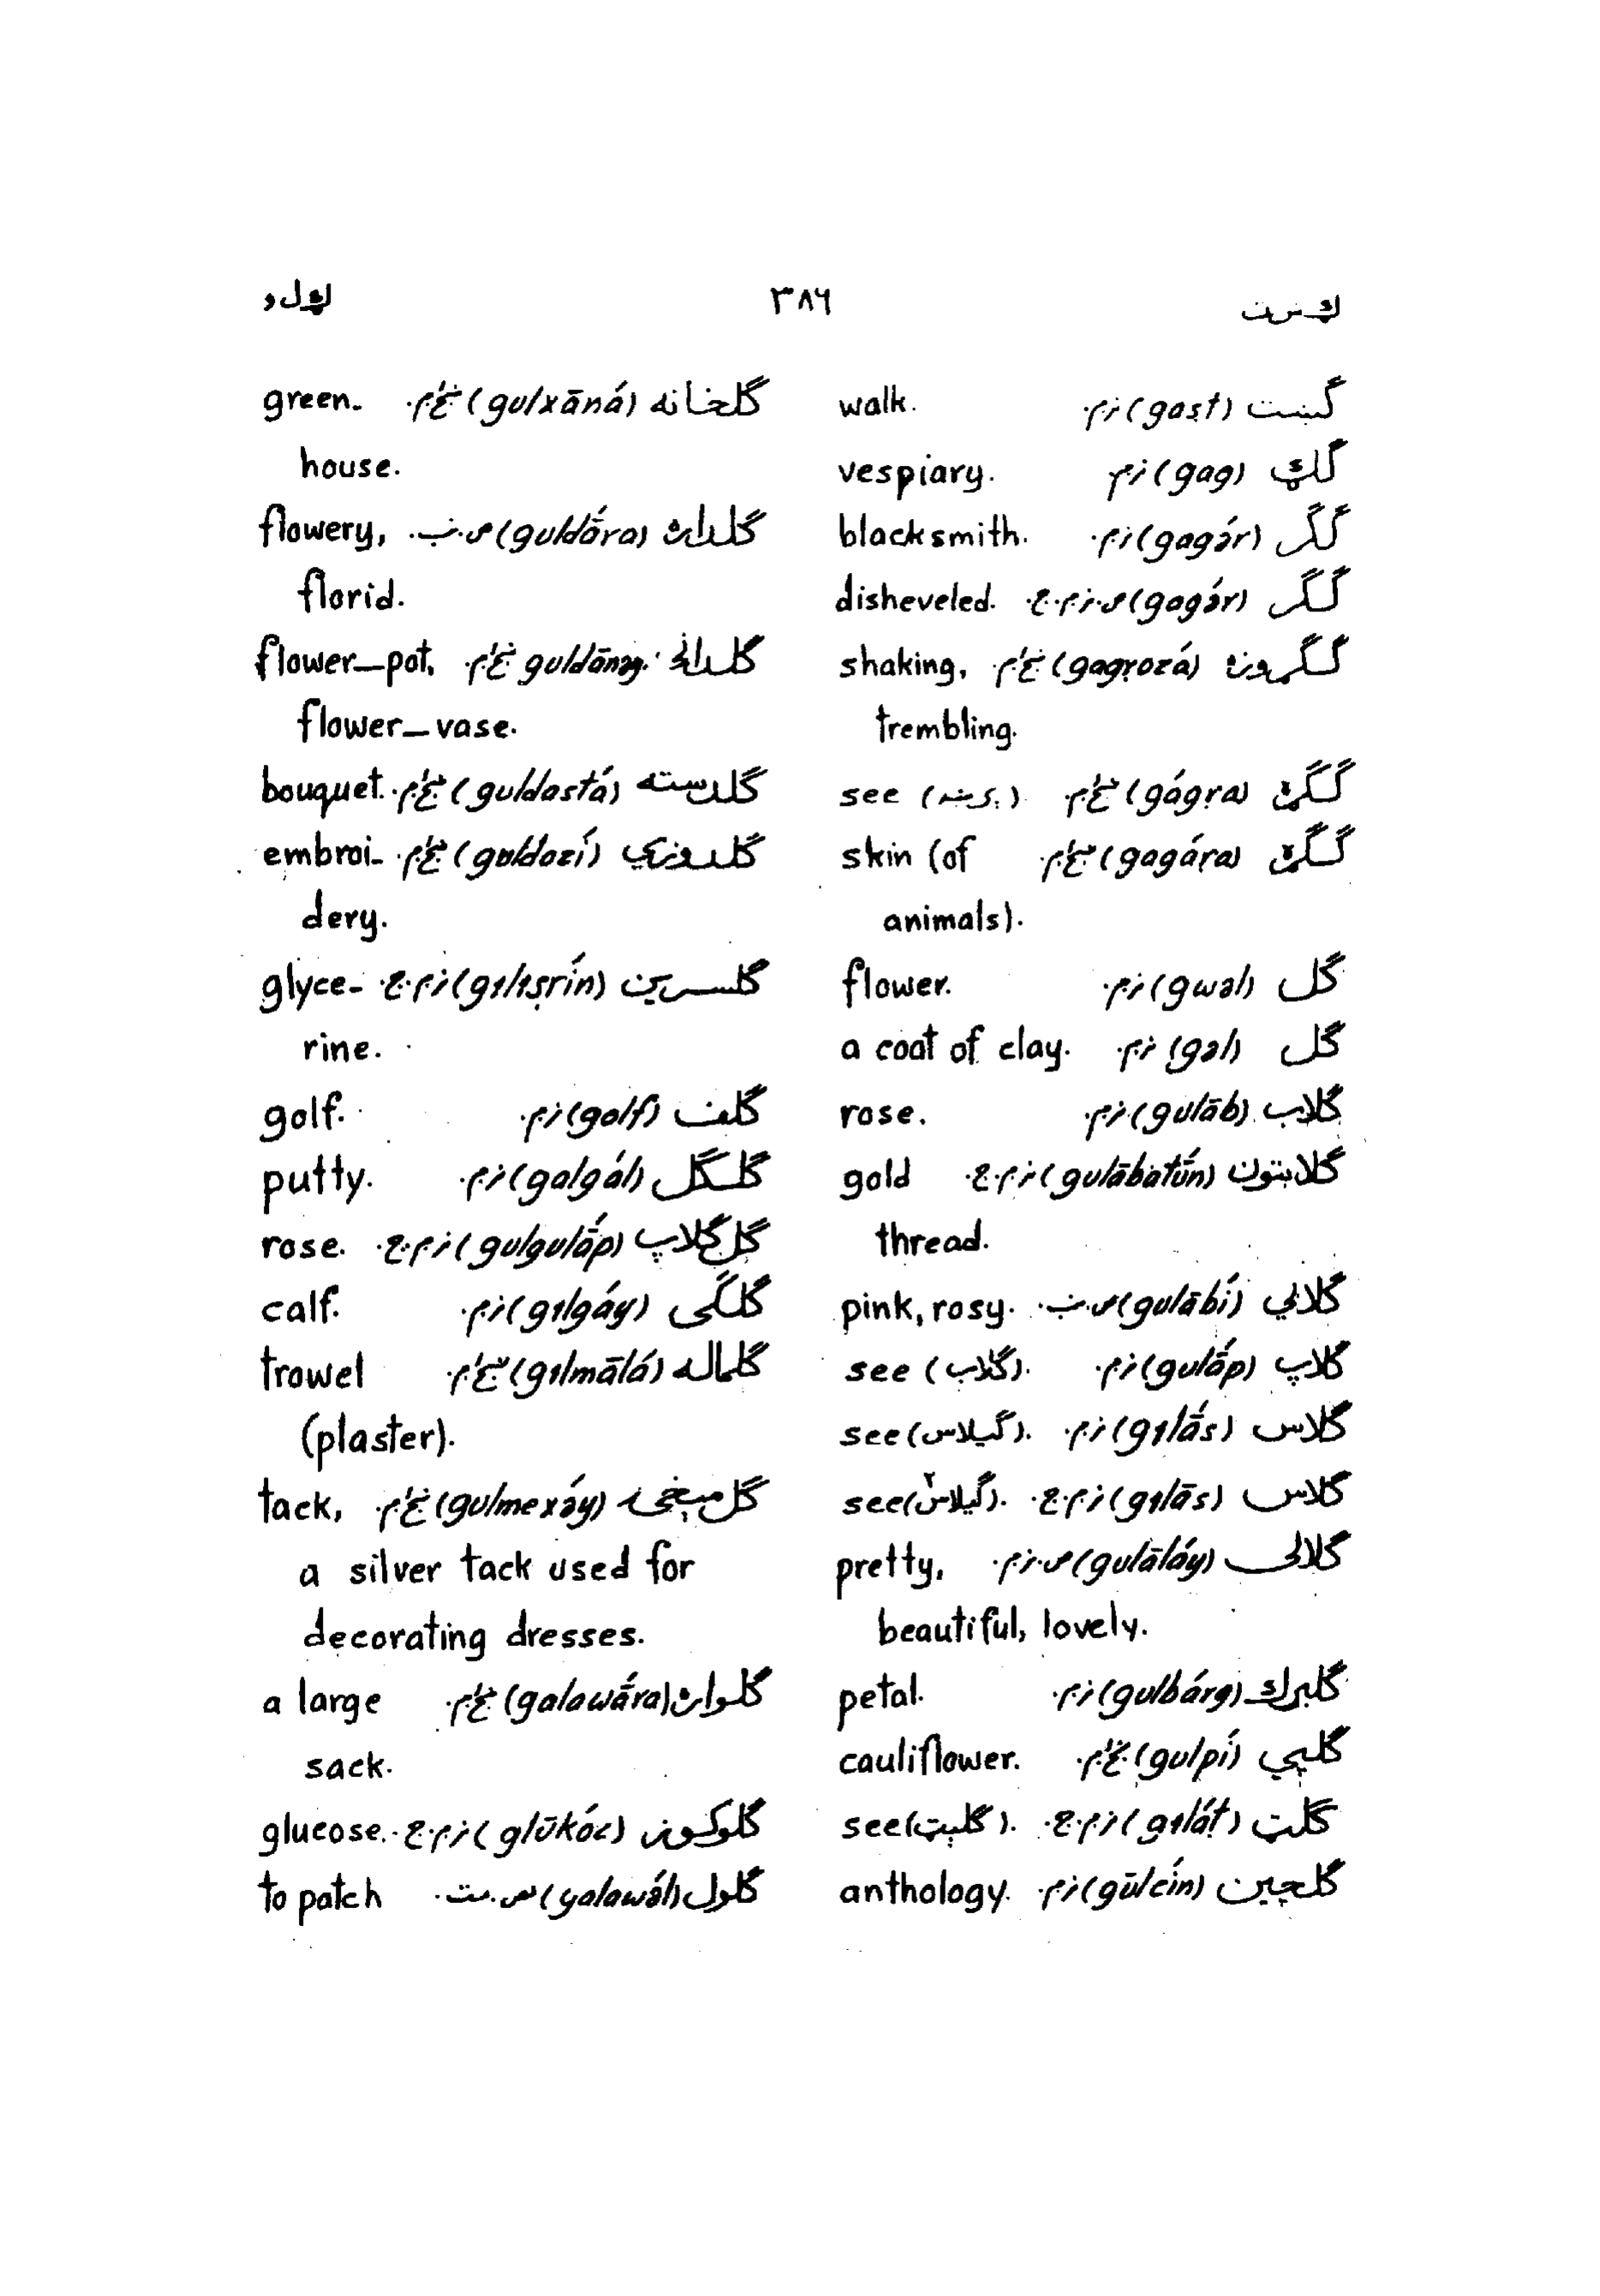 ګ س ت ۳۸۶ ګ ل و
ګښت (gaṣt) ن.م. walk.
ګګ (gag) ن.م vespiary.
ګګر (gagə́r) ن.م. blacksmith.
ګګر (gagə́r) ص.ن.م.ج. disheveled.
(gagṛozá) shaking,
trembling.
(gágṛa) see
(gagáṛa) skin (of
animals).
گل (gwəl) ن.م. flower.
گل (gəl) ن.م. a coat of clay.
گلاب (gulāb) ن.م. rose.
گلابتون (gulābatū́n) ن.م.ج. gold
thread.
گلابي (gulābí) ص.ن. pink, rosy.
گلاپ (gulā́p) ن.م. see (گلاب).
گلاس (gılā́s) ن.م. see (گیلاس).
گلاس (gılās) ن.م.ج. see (گیلاس۲).
گلالی (gulāláy) ص.ن.م. pretty,
beautiful, lovely.
گلبرګ (gulbárg) ن.م. petal.
گلپي (gulpí) cauliflower.
گلټ (gıláṭ) ن.م.ج. see (گلېټ).
گلچین (gūlcín) ن.م. anthology.
گلخانه (gulxāná) green-
house.
گلداره (guldā́ra) ص.ن. flowery,
florid.
guldānəy flower-pot,
flower-vase.
گلدسته (guldastá) bouquet.
گلدوزي (guldozí) embroi-
dery.
گلسرین (gılısrín) ن.م.ج. glyce-
rine.
گلف (golf) ن.م. golf.
گلګل (galgál) ن.م. putty.
گل گلاپ (gulgulā́p) ن.م.ج. rose.
گلګی (gılgáy) ن.م. calf.
گلماله (gılmālá) trowel
(plaster).
گل میخۍ (gulmexə́y) tack,
a silver tack used for
decorating dresses.
گلواره (galawā́ra) a large
sack.
گلوکوز (glūkóz) ن.م.ج. glucose.
گلول (galawə́l) to patch